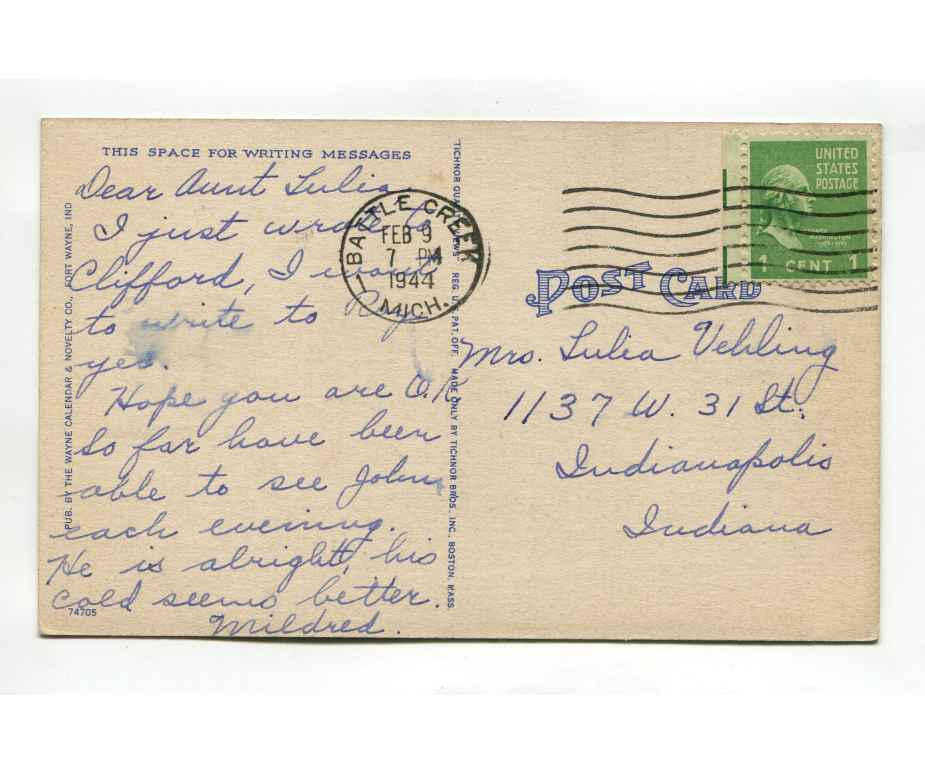 THIS SPACE FOR WRITING MESSAGES
Dear Aunt Lulia
I just wrote to
Clifford, I want
to write to
yes.
Hope you are O.K
So far have been
able to see John
each evening.
He is alright, his
cold seems better.
Mildred.
74705
PUB. BY THE WAYNE CALENDAR & NOVELTY CO., FORT WAYNE, IND
TICHNOR QUALITY VIEWS REG. U.S. PAT. OFF. MADE ONLY BY TICHNOR BROS. INC. BOSTON, MASS.
BATTLE CREEK
FEB 9
7 PM
1944
MICH.
UNITED
STATES
POSTAGE
WASHINGTON
1 CENT 1
POST CARD
Mrs. Lulia Vehling
1137 W. 31 St.
Indianapolis
Indiana